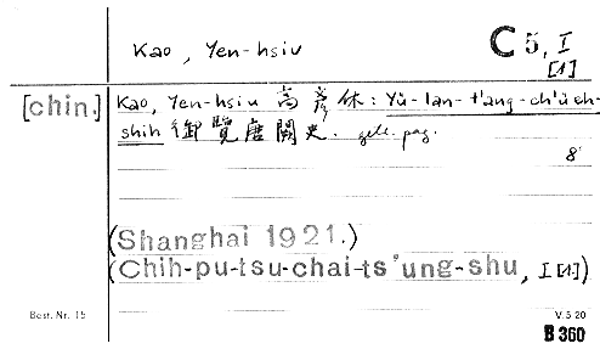 Kao, Yen-hsiu
C 5, I
[1]
[chin.]
Kao, Yen-hsiu 高彦休: Yü-lan-t'ang-ch'üeh-
shih 御覽唐闕史. getr. pag.
8°
(Shanghai 1921.)
(Chih-pu-tsu-chai-ts'ung-shu, I [1])
Best. Nr. 15
V. 5 20
B 360